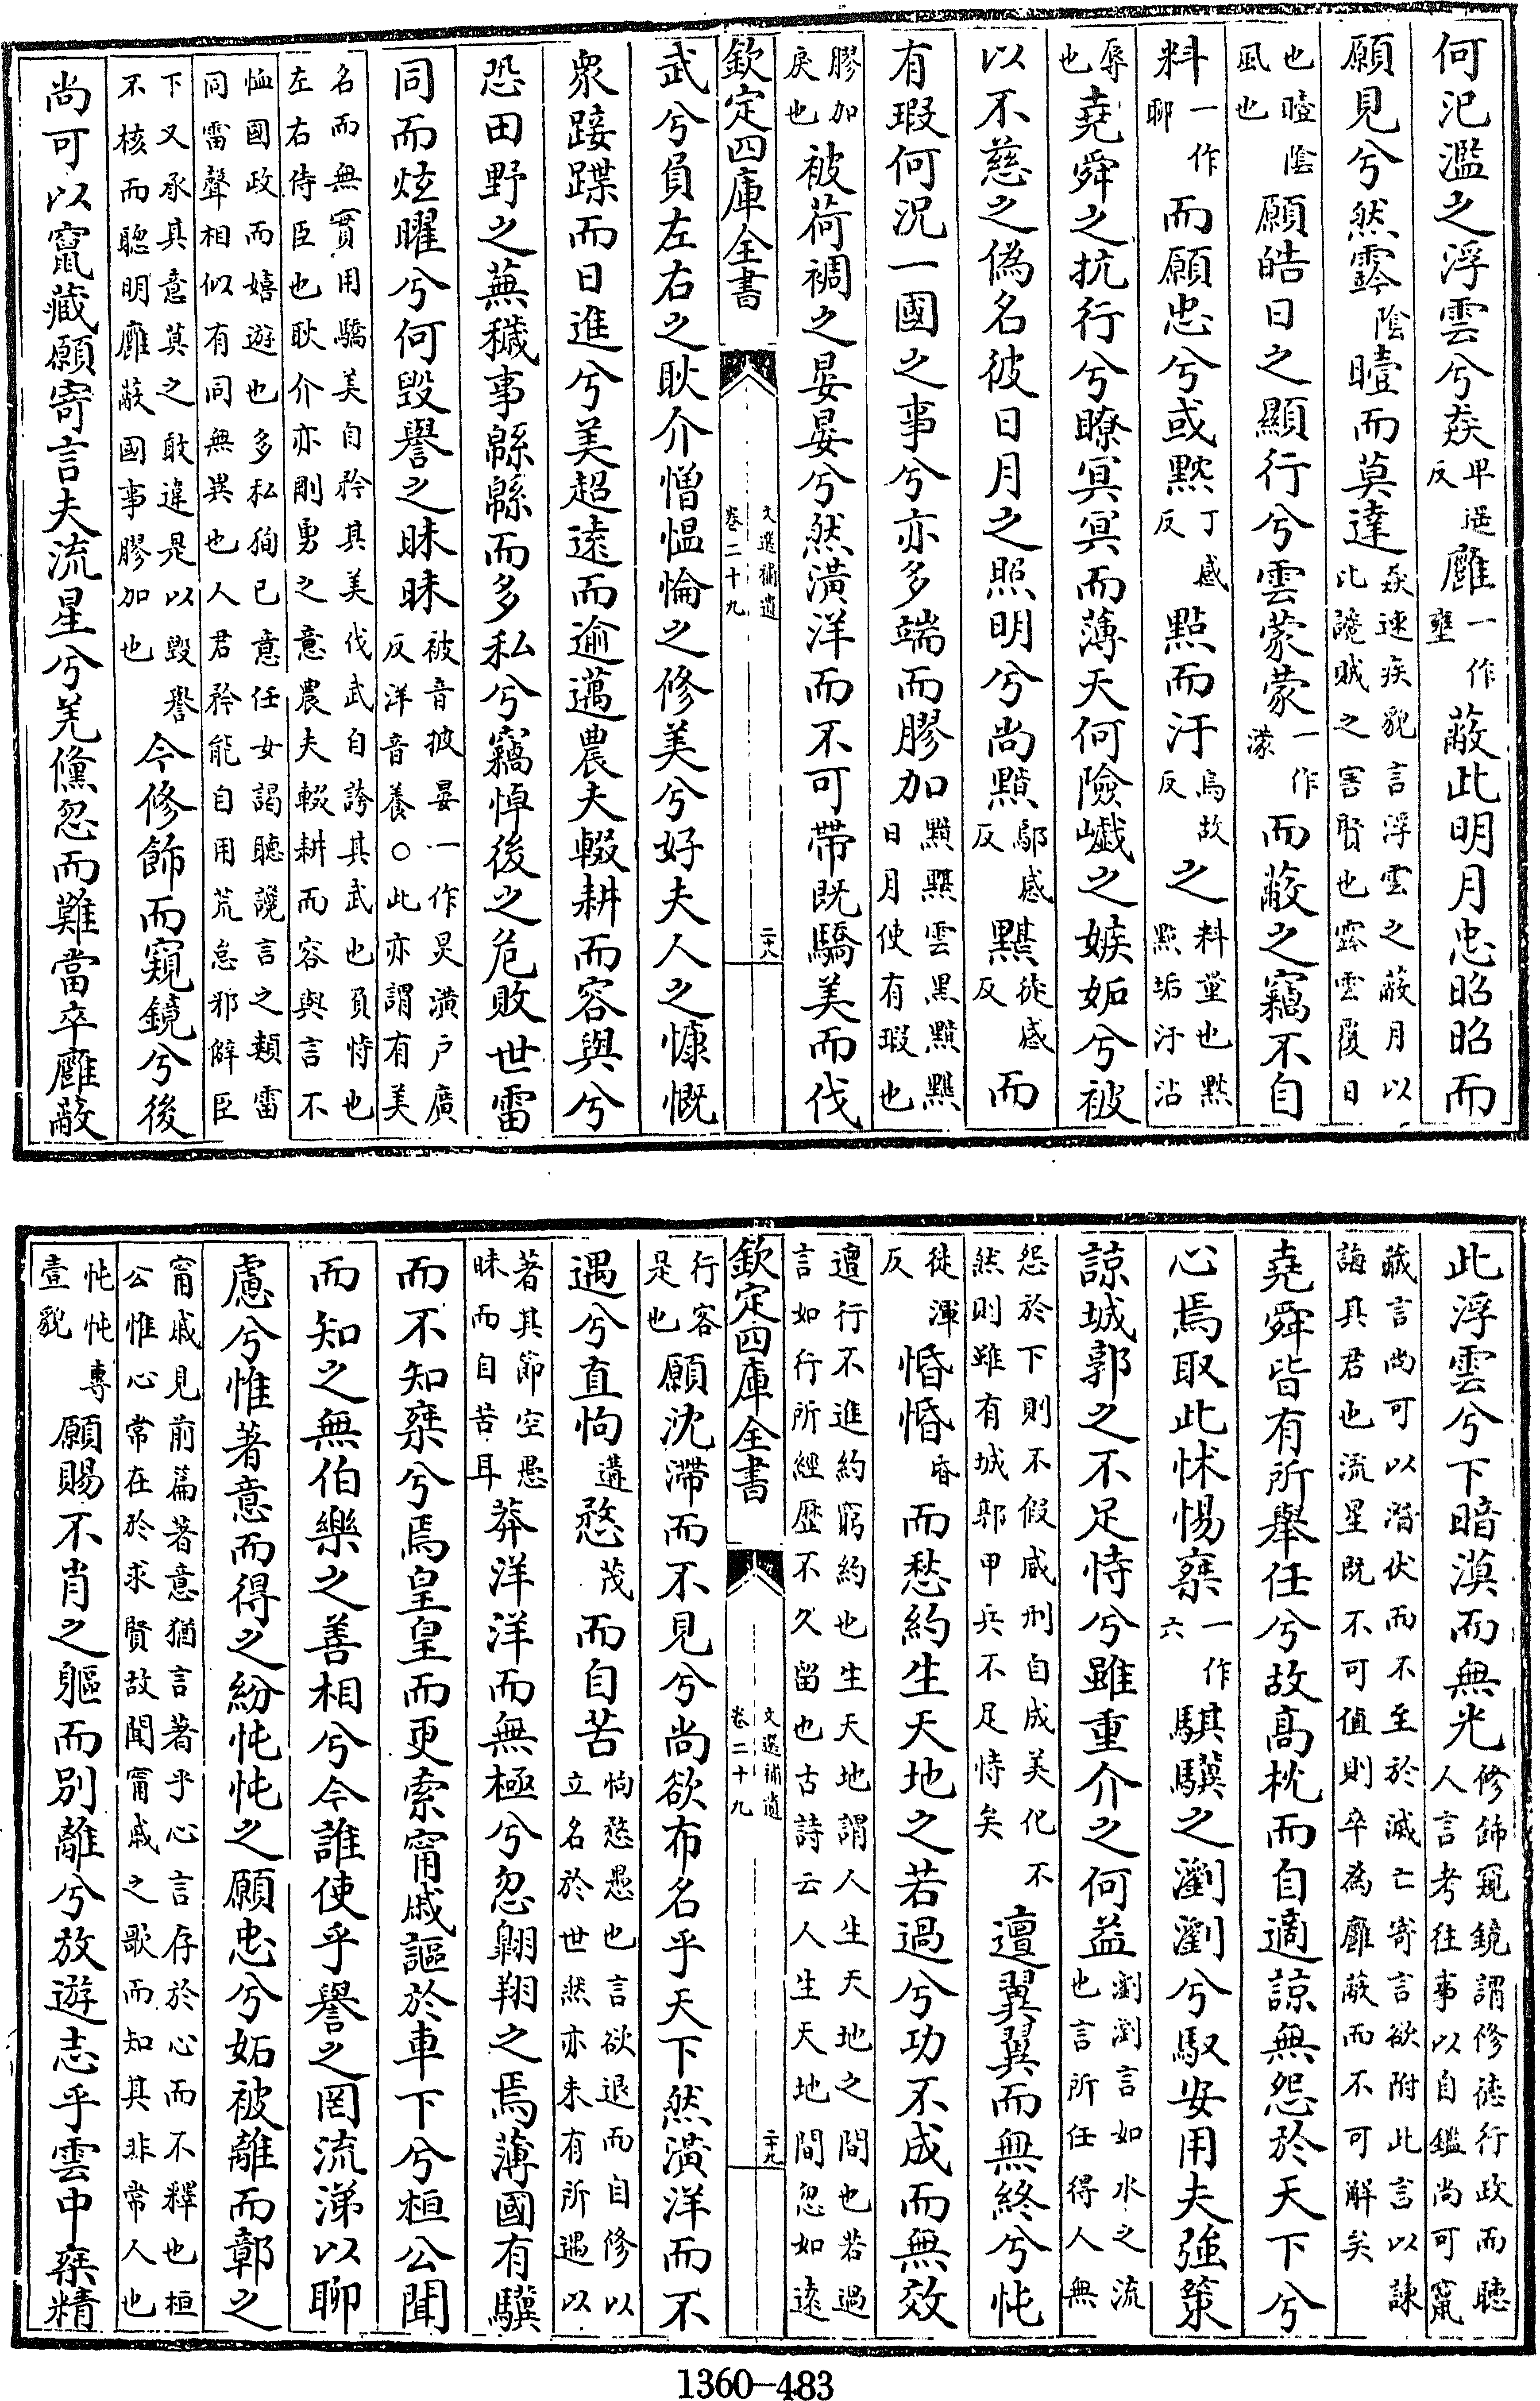 何氾濫之浮雲兮猋卑遥反廱一作壅蔽此明月忠昭昭而
願見兮然霒陰曀而莫達猋速疾貌言浮雲之蔽月以比讒賊之害賢也霒雲覆日
也曀陰風也願皓日之顯行兮雲蒙蒙一作濛而蔽之竊不自
料一作聊而願忠兮或黕丁感反點而汙烏故反之料量也黕點垢汙沾
辱也堯舜之抗行兮瞭冥冥而薄天何險巇之嫉妬兮被
以不慈之偽名彼日月之照明兮尚黭鄔感反黮徒感反而
有瑕何況一國之事兮亦多端而膠加黭黮雲黑黭黮日月使有瑕也
膠加戾也被荷裯之晏晏兮然潢洋而不可帶既驕美而伐
欽定四庫全書
文選補遺
卷二十九
二十八
武兮負左右之耿介憎愠惀之修美兮好夫人之慷慨
衆踥蹀而日進兮美超遠而逾邁農夫輟耕而容與兮
恐田野之蕪穢事緜緜而多私兮竊悼後之危敗世雷
同而炫曜兮何毀譽之昧昧被音披晏一作炅潢户廣反洋音養○此亦謂有美
名而無實用驕美自矜其美伐武自誇其武也負恃也左右侍臣也耿介亦剛勇之意農夫輟耕而容與言不
恤國政而嬉遊也多私狥已意任女謁聽讒言之類雷同雷聲相似有同無異也人君矜能自用荒怠邪僻臣
下又承其意莫之敢違是以毀譽不核而聰明廱蔽國事膠加也今修飾而窺鏡兮後
尚可以竄藏願寄言夫流星兮羌儵忽而難當卒廱蔽
此浮雲兮下暗漠而無光修飾窺鏡謂修徳行政而聽人言考往事以自鑑尚可竄
藏言尚可以潛伏而不至於滅亡寄言欲附此言以諫誨具君也流星既不可值則卒為廱蔽而不可解矣
堯舜皆有所舉任兮故高枕而自適諒無怨於天下兮
心焉取此怵惕椉一作六騏驥之瀏瀏兮馭安用夫強策
諒城郭之不足恃兮雖重介之何益瀏瀏言如水之流也言所任得人無
怨於下則不假威刑自成美化不然則雖有城郭甲兵不足恃矣邅翼翼而無終兮忳
徒渾反惛惛昏而愁約生天地之若過兮功不成而無效
邅行不進約窮約也生天地謂人生天地之間也若過言如行所經歴不久留也古詩云人生天地間忽如遠
欽定四庫全書
文選補遺
卷二十九
二十九
行客是也願沈滯而不見兮尚欲布名乎天下然潢洋而不
遇兮直怐遘愗茂而自苦怐愗愚也言欲退而自修以立名於世然亦未有所遇以
著其節空愚昧而自苦耳莽洋洋而無極兮忽翺翔之焉薄國有驥
而不知椉兮焉皇皇而更索甯戚謳於車下兮桓公聞
而知之無伯樂之善相兮今誰使乎譽之罔流涕以聊
慮兮惟著意而得之紛忳忳之願忠兮妬被離而鄣之
甯戚見前篇著意猶言著乎心言存於心而不釋也桓公惟心常在於求賢故聞甯戚之歌而知其非常人也
忳忳專壹貌願賜不肖之軀而别離兮放遊志乎雲中椉精
1360-483